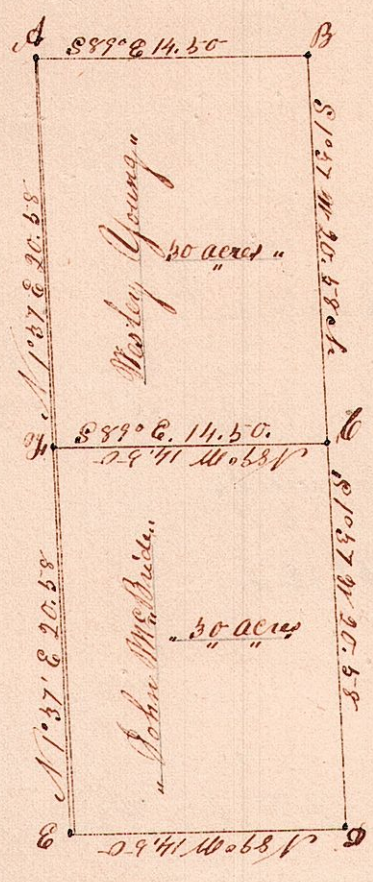 A
S 89° E 14.50
B
N 1° 37' E 20.58
Wesley Young
30 acres
S 1° 37 W 20.58 ch
F
S 89° E. 14.50.
N 89° W 14.50
C
N 1° 37' E 20.58
John McBride
" 30 acres
S 1° 37 W 20.58
E
N 89° W 14.50
D